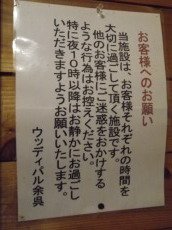 お客様へのお願い
当施設は、お客様それぞれの時間を
大切に過ごして頂く施設です。
他のお客様にご迷惑をおかけする
ような行為はお控えください。
特に夜１０時以降はお静かにお過ごし
いただきますようお願いいたします。
ウッディパル余呉